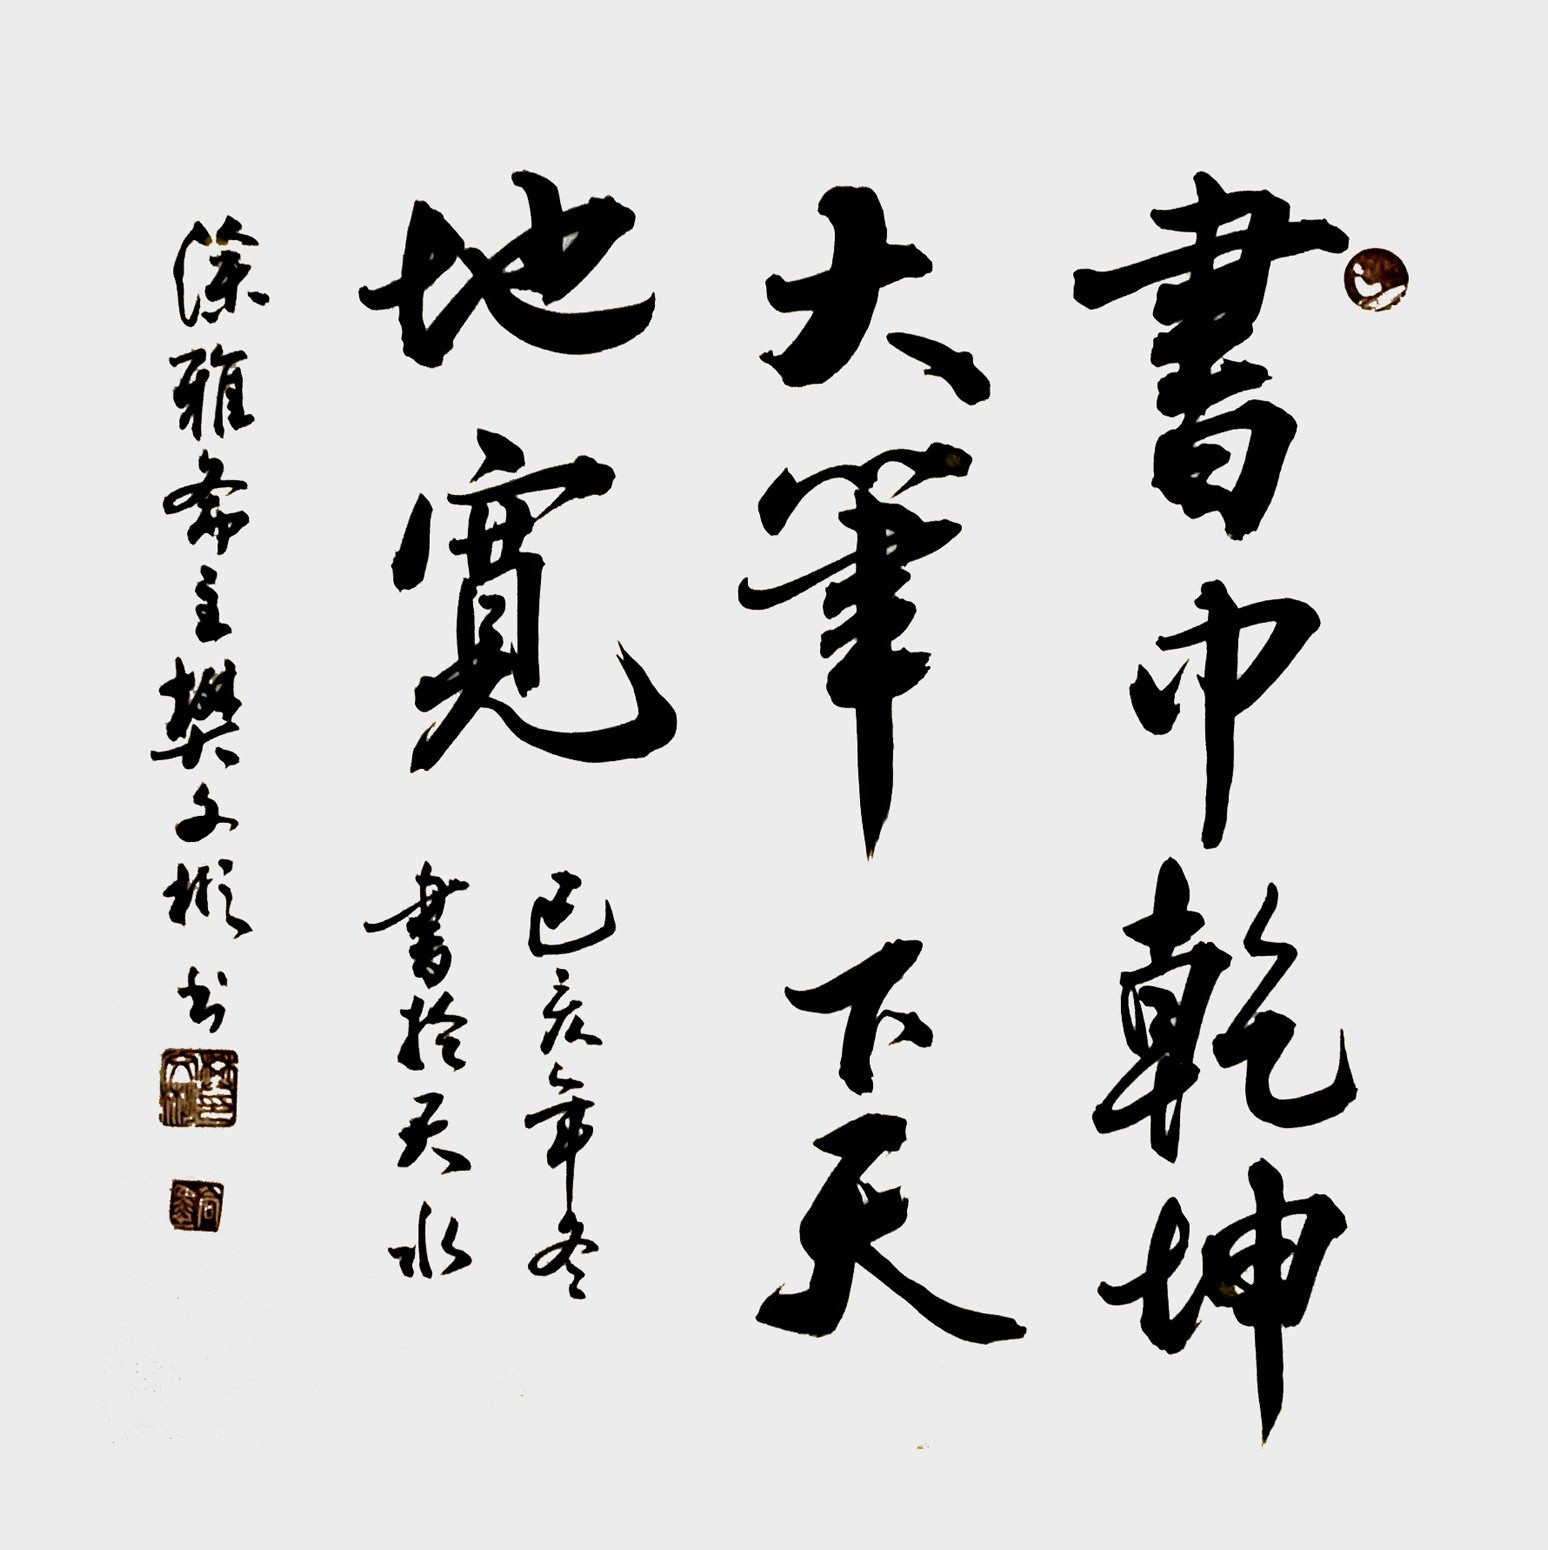 書巾乾坤
大筆下天
地寬
己亥年冬
書於天水
深雅斋主樊文彬书